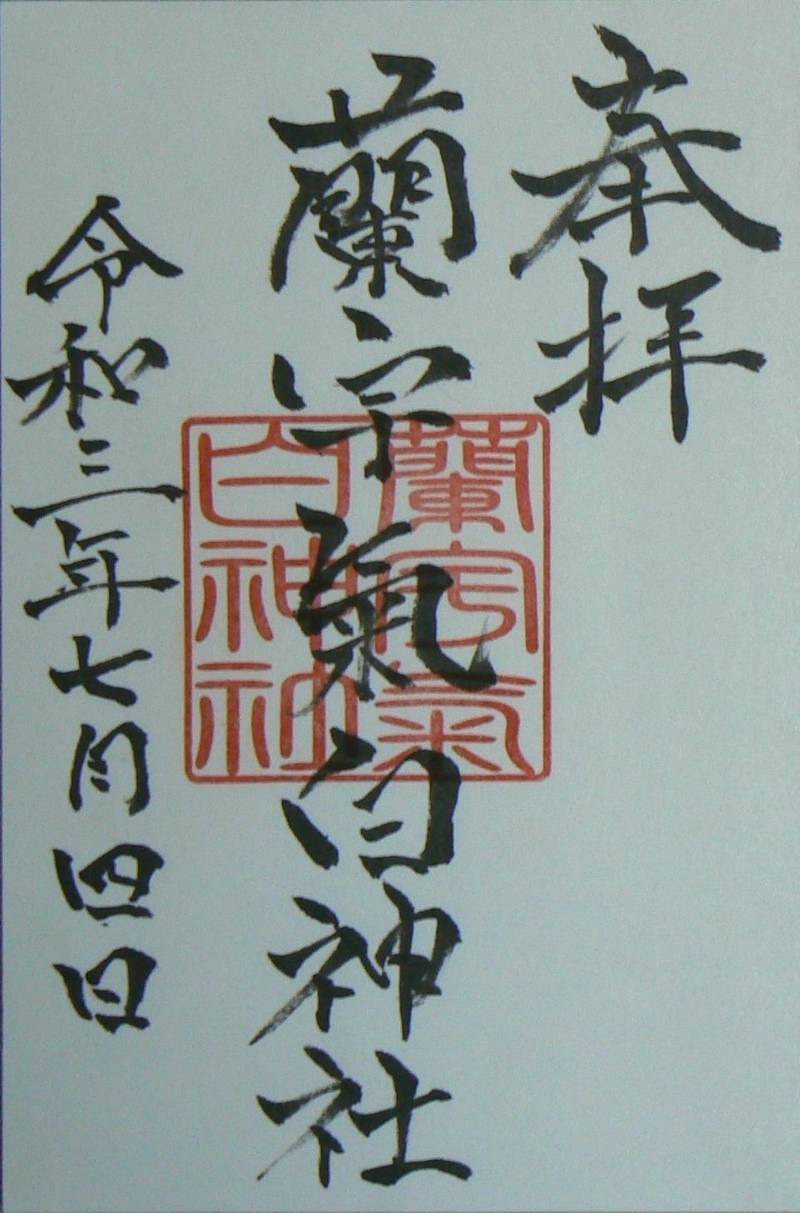 奉拝
蘭宇氣白神社
蘭宇氣
白神社
令和三年七月四日